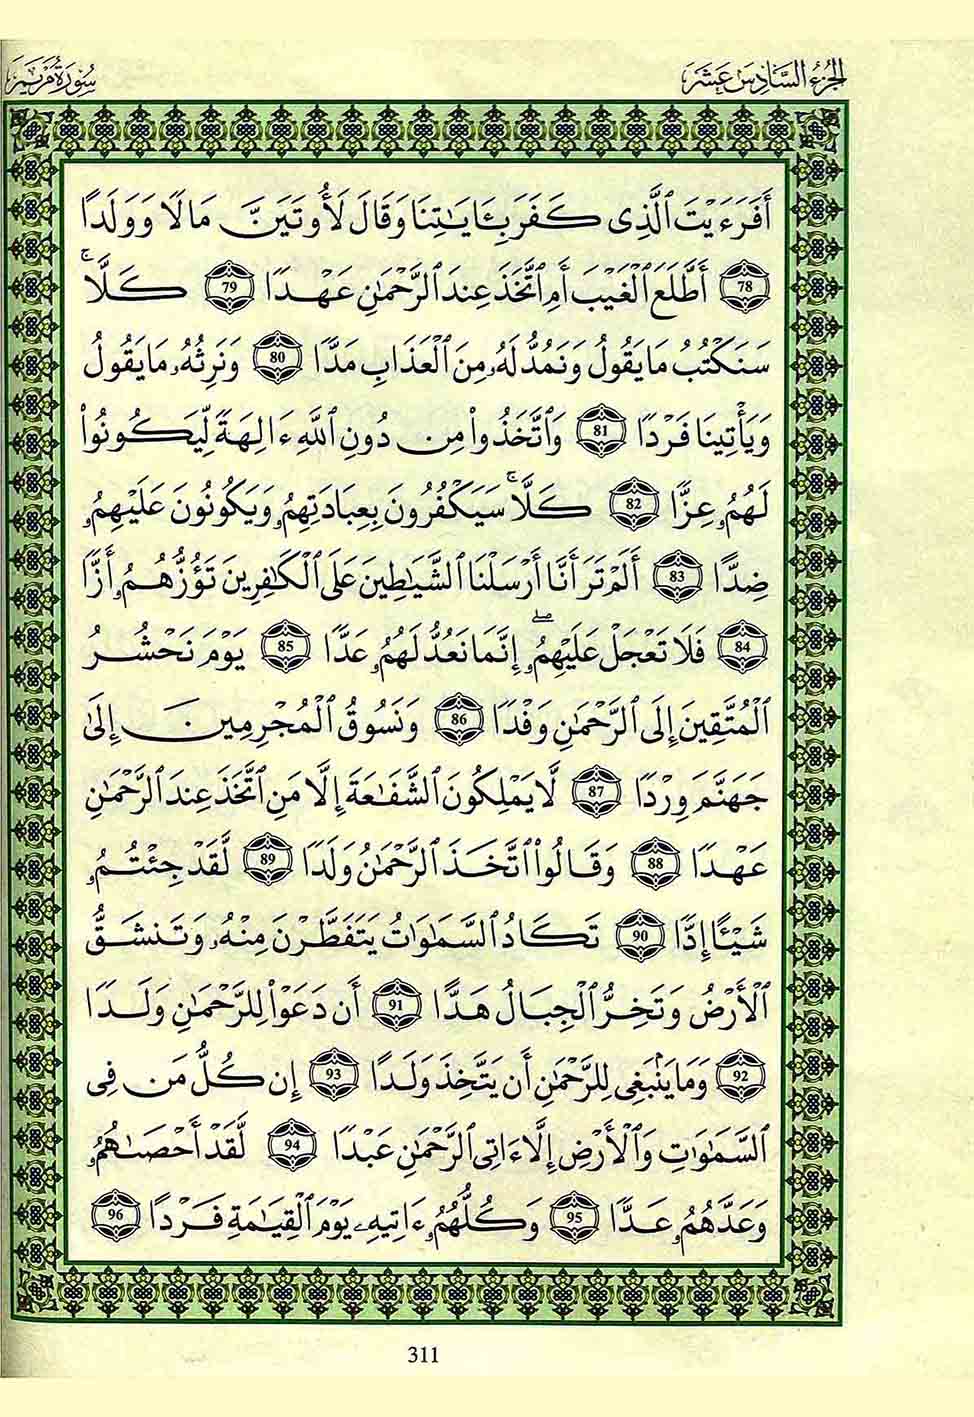 الجزء السادس عشر
سورة مريم
أَفَرَءَيْتَ ٱلَّذِى كَفَرَ بِـَٔايَـٰتِنَا وَقَالَ لَأُوتَيَنَّ مَالًا وَوَلَدًا
78 أَطَّلَعَ ٱلْغَيْبَ أَمِ ٱتَّخَذَ عِندَ ٱلرَّحْمَـٰنِ عَهْدًا 79 كَلَّا ۚ
سَنَكْتُبُ مَا يَقُولُ وَنَمُدُّ لَهُۥ مِنَ ٱلْعَذَابِ مَدًّا 80 وَنَرِثُهُۥ مَا يَقُولُ
وَيَأْتِينَا فَرْدًا 81 وَٱتَّخَذُوا۟ مِن دُونِ ٱللَّهِ ءَالِهَةً لِّيَكُونُوا۟
لَهُمُۥ عِزًّا 82 كَلَّا ۚ سَيَكْفُرُونَ بِعِبَادَتِهِمُۥ وَيَكُونُونَ عَلَيْهِمُۥ
ضِدًّا 83 أَلَمْ تَرَ أَنَّا أَرْسَلْنَا ٱلشَّيَـٰطِينَ عَلَى ٱلْكَـٰفِرِينَ تَؤُزُّهُمُۥ أَزًّا
84 فَلَا تَعْجَلْ عَلَيْهِمُۥ ۖ إِنَّمَا نَعُدُّ لَهُمُۥ عَدًّا 85 يَوْمَ نَحْشُرُ
ٱلْمُتَّقِينَ إِلَى ٱلرَّحْمَـٰنِ وَفْدًا 86 وَنَسُوقُ ٱلْمُجْرِمِينَ إِلَىٰ
جَهَنَّمَ وِرْدًا 87 لَّا يَمْلِكُونَ ٱلشَّفَـٰعَةَ إِلَّا مَنِ ٱتَّخَذَ عِندَ ٱلرَّحْمَـٰنِ
عَهْدًا 88 وَقَالُوا۟ ٱتَّخَذَ ٱلرَّحْمَـٰنُ وَلَدًا 89 لَّقَدْ جِئْتُمُۥ
شَيْـًٔا إِدًّا 90 تَكَادُ ٱلسَّمَـٰوَٰتُ يَتَفَطَّرْنَ مِنْهُۥ وَتَنشَقُّ
ٱلْأَرْضُ وَتَخِرُّ ٱلْجِبَالُ هَدًّا 91 أَن دَعَوْا۟ لِلرَّحْمَـٰنِ وَلَدًا
92 وَمَا يَنۢبَغِى لِلرَّحْمَـٰنِ أَن يَتَّخِذَ وَلَدًا 93 إِن كُلُّ مَن فِى
ٱلسَّمَـٰوَٰتِ وَٱلْأَرْضِ إِلَّا ءَاتِى ٱلرَّحْمَـٰنِ عَبْدًا 94 لَّقَدْ أَحْصَـٰهُمُۥ
وَعَدَّهُمُۥ عَدًّا 95 وَكُلُّهُمُۥ ءَاتِيهِۦ يَوْمَ ٱلْقِيَـٰمَةِ فَرْدًا 96
311